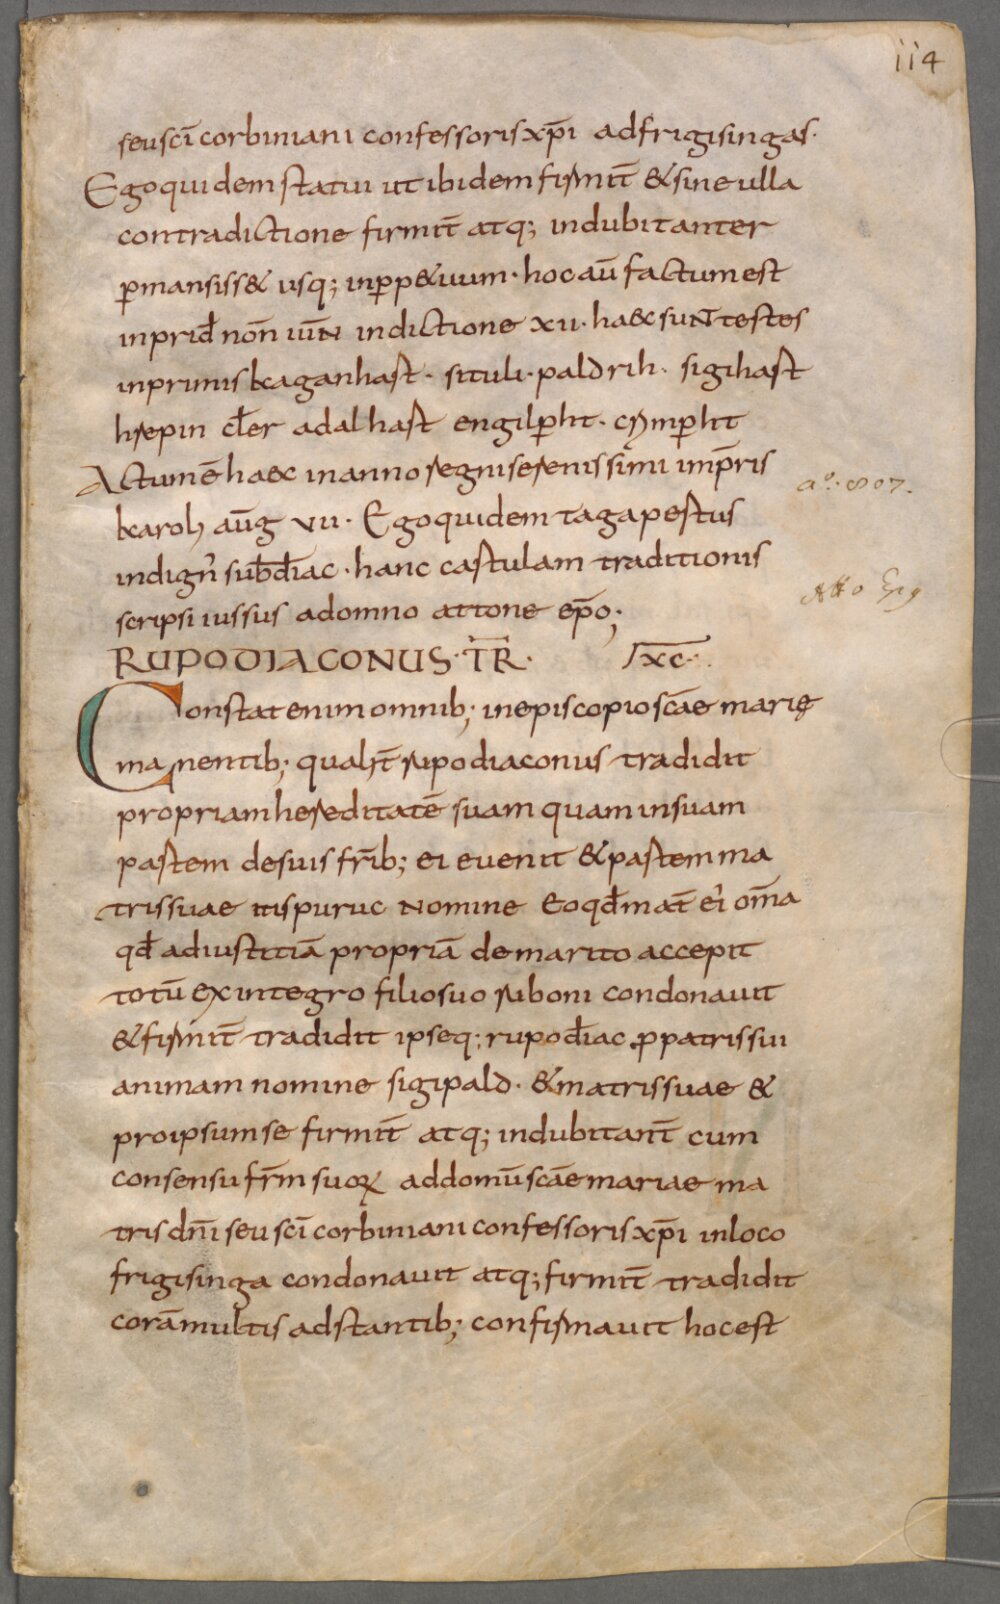 114
seu sc̄i corbiniani confessoris xp̄i ad frigisingas·
Ego quidem statui ut ibidem firmit̄ & sine ulla
contradictione firmit̄ atq; indubitanter
ꝑmansiss& usq; in ꝑp&uum· hoc aū factum est
in prid̄ nōn iūn indictione xii· haec sunt testes
inprimis kaganhast· situli· paldrih· sigihast
hrepin cl̄er adalhast engilꝑht· cymꝑht
Actum ē haec in anno regni serenissimi imp̄ris
karoli aūg vii· Ego quidem tagapertus
aº· 807.
indign̄ sub̄diac· hanc cartulam traditionis
scripsi iussus a domno attone ep̄o;
Atto Epͥs
RUPO DIACONUS· TR̄· xc·
Constat enim omnib; in episcopio sc̄ae marię
manentib; qualit̄ rupo diaconus tradidit
propriam hereditatē suam quam in suam
partem de suis fr̄ib; ei evenit & partem ma
tris suae itispuruc nomine Eo qd̄ mat̄ ei' om̄a
qd̄ ad iustitiā propriā de marito accepit
totū ex integro filio suo riboni condonavit
& firmit̄ tradidit ipseq; rupo d̄iac ꝓ patris sui
animam nomine sigipald· & matris suae &
pro ipsum se firmit̄ atq; indubitant̄ cum
consensu fr̄m suoꝝ ad domū sc̄ae mariae ma
tris dn̄i seu sc̄i corbiniani confessoris xp̄i in loco
frigisinga condonavit atq; firmit̄ tradidit
corā multis adstantib; confirmavit hoc est